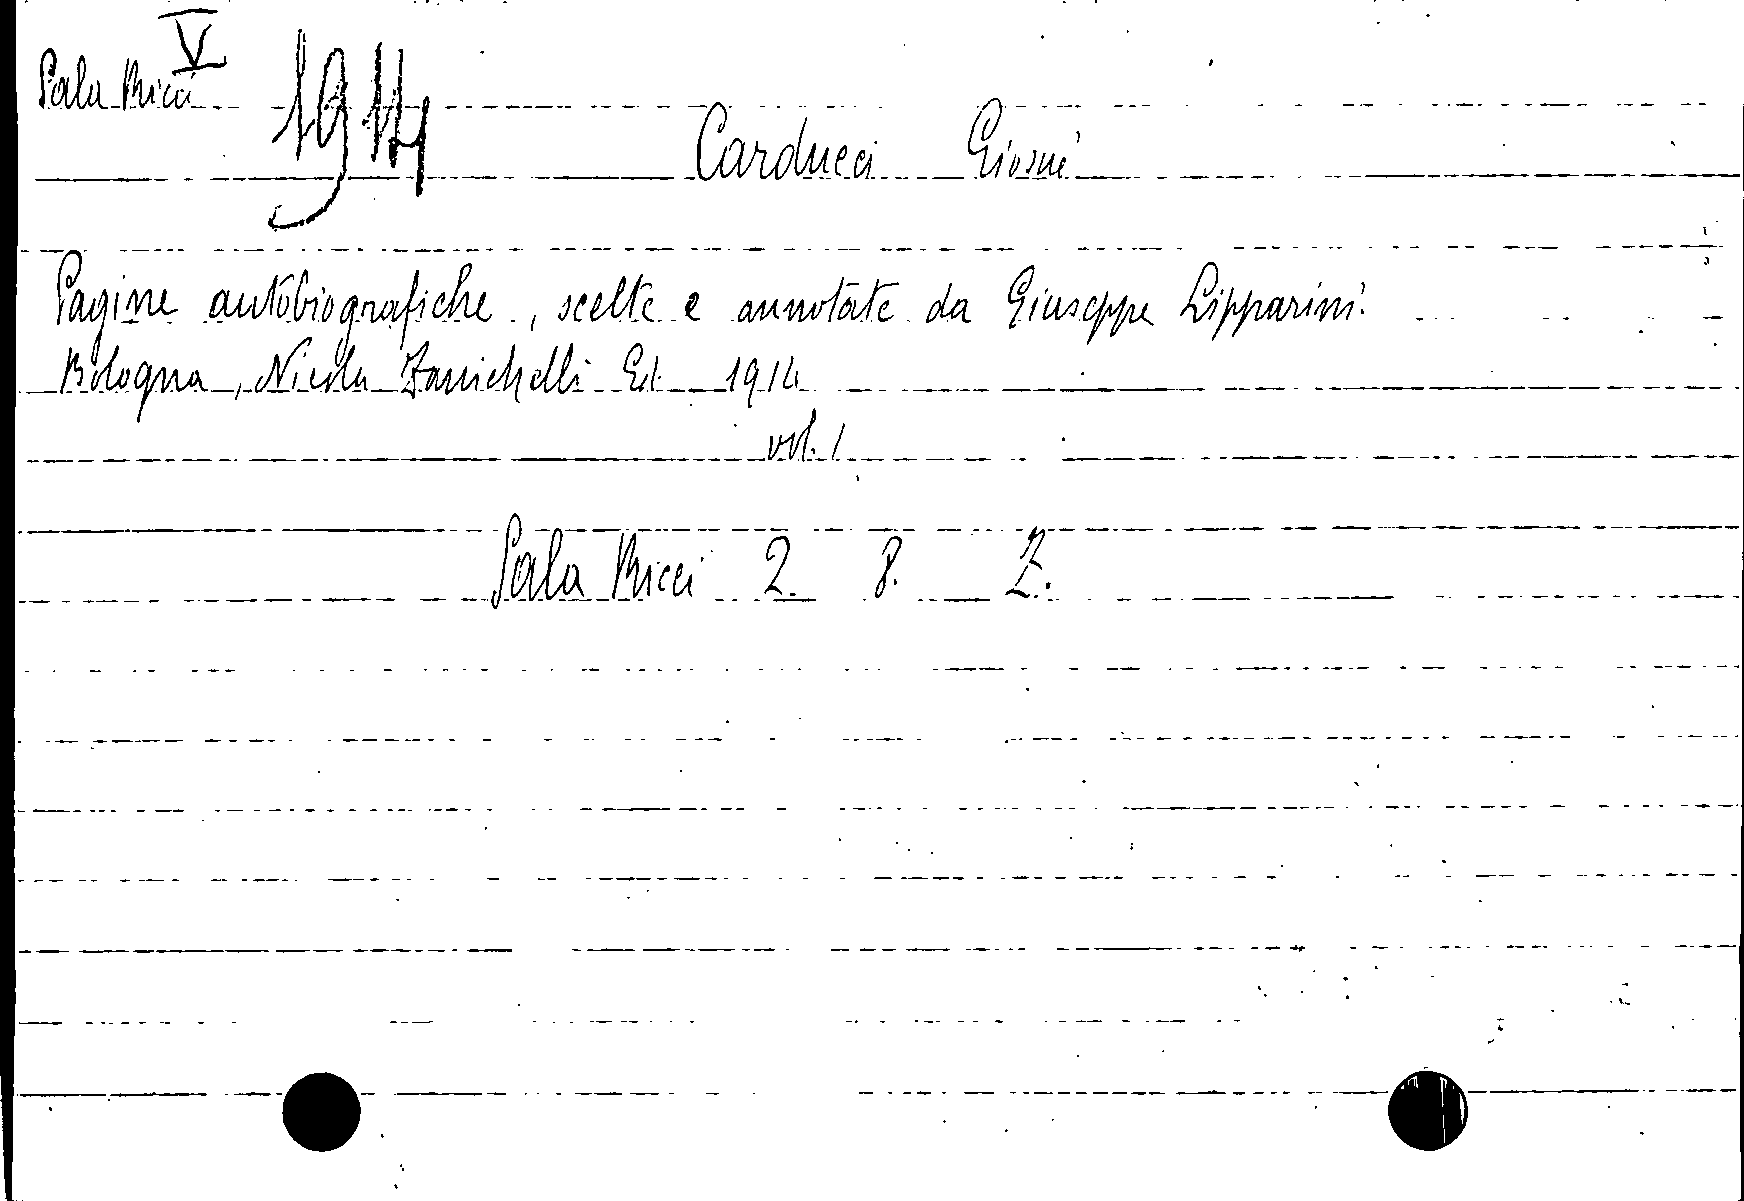 V
Sala Ricci
1914
Carducci Giosuè
Pagine autobiografiche, scelte e annotate da Giuseppe Lipparini.
Bologna, Nicola Zanichelli Ed. 1914
vol. 1
Sala Ricci 2. 8. Z.